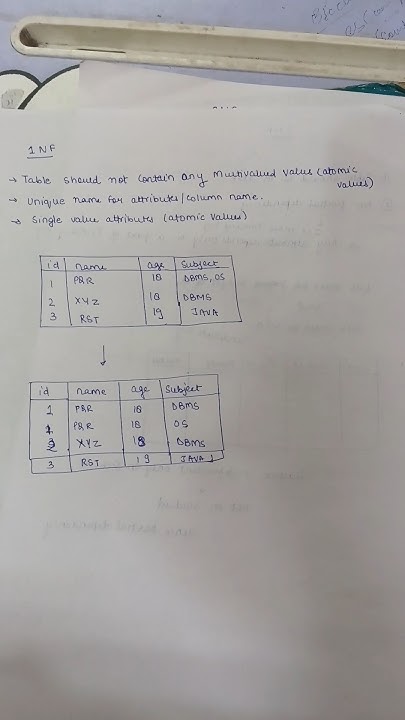 1 NF
→ Table should not contain any multivalued value (atomic
values)
→ Unique name for attributes/column name.
→ Single value attributes (atomic values)
id name age Subject
1 PQR 18 DBMS, OS
2 XYZ 18 DBMS
3 RST 19 JAVA
id name age Subject
1 PQR 18 DBMS
1 PQR 18 OS
2 XYZ 18 DBMS
3 RST 19 JAVA